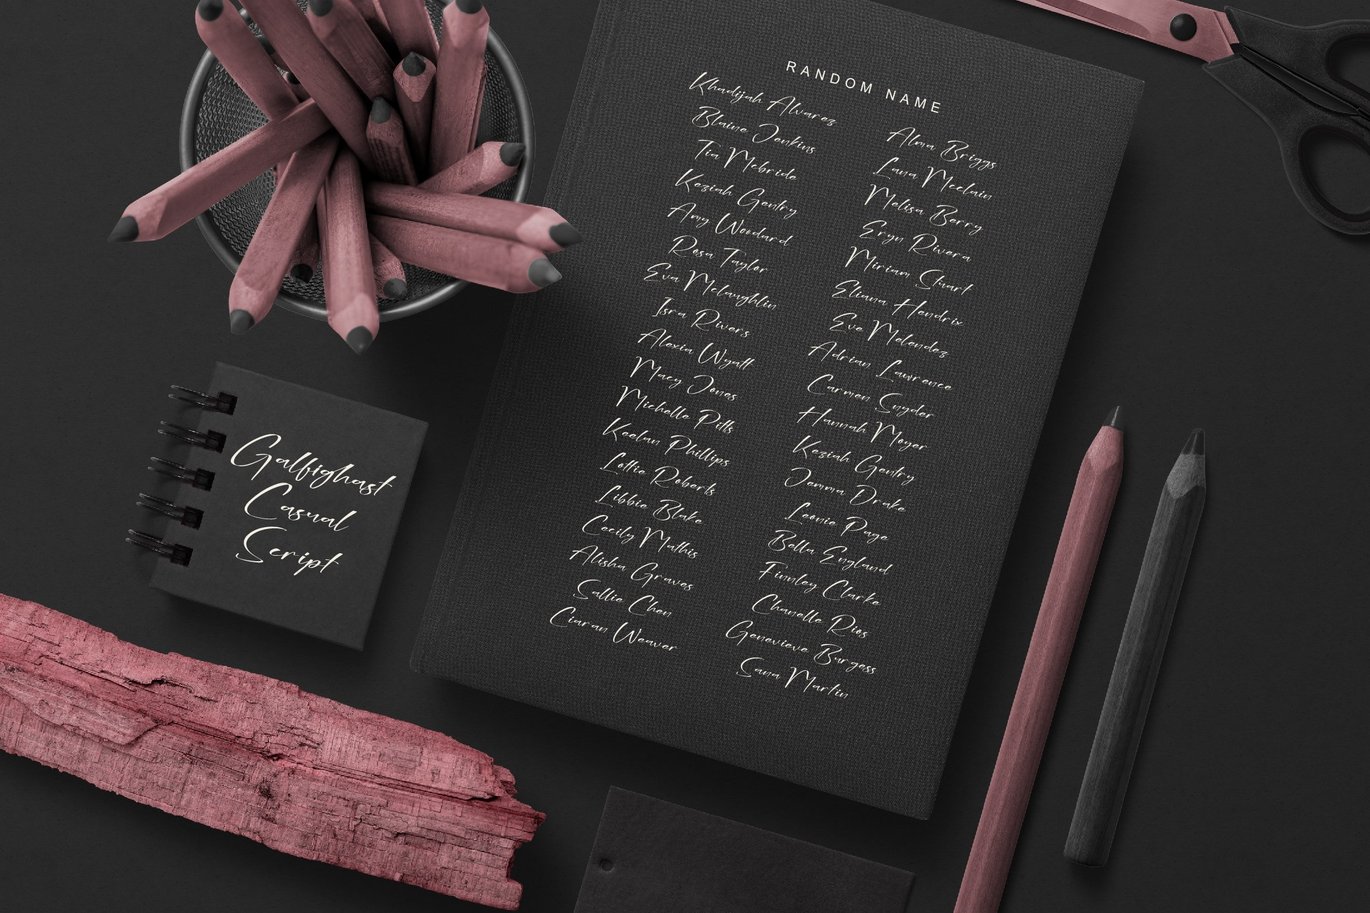 RANDOM NAME
Khadijah Alvarez
Blaine Jenkins
Tia Mcbride
Keziah Gentry
Amy Woodard
Rosa Taylor
Eva Mclaughlin
Isra Rivers
Alexia Wyatt
Macy Jones
Michelle Pitts
Keelan Phillips
Lottie Roberts
Libbie Blake
Cecily Mathis
Alisha Graves
Sallie Chen
Ciaran Weaver
Alma Briggs
Lana Mcclain
Melisa Berry
Eryn Rivera
Miriam Stuart
Eliana Hendrix
Eve Melendez
Adrian Lawrence
Carmen Snyder
Hannah Meyer
Keziah Gentry
Jemma Drake
Leonie Page
Bella England
Finnley Clarke
Chanelle Rios
Genevieve Burgess
Sana Martin
Galfighast
Casual
Script